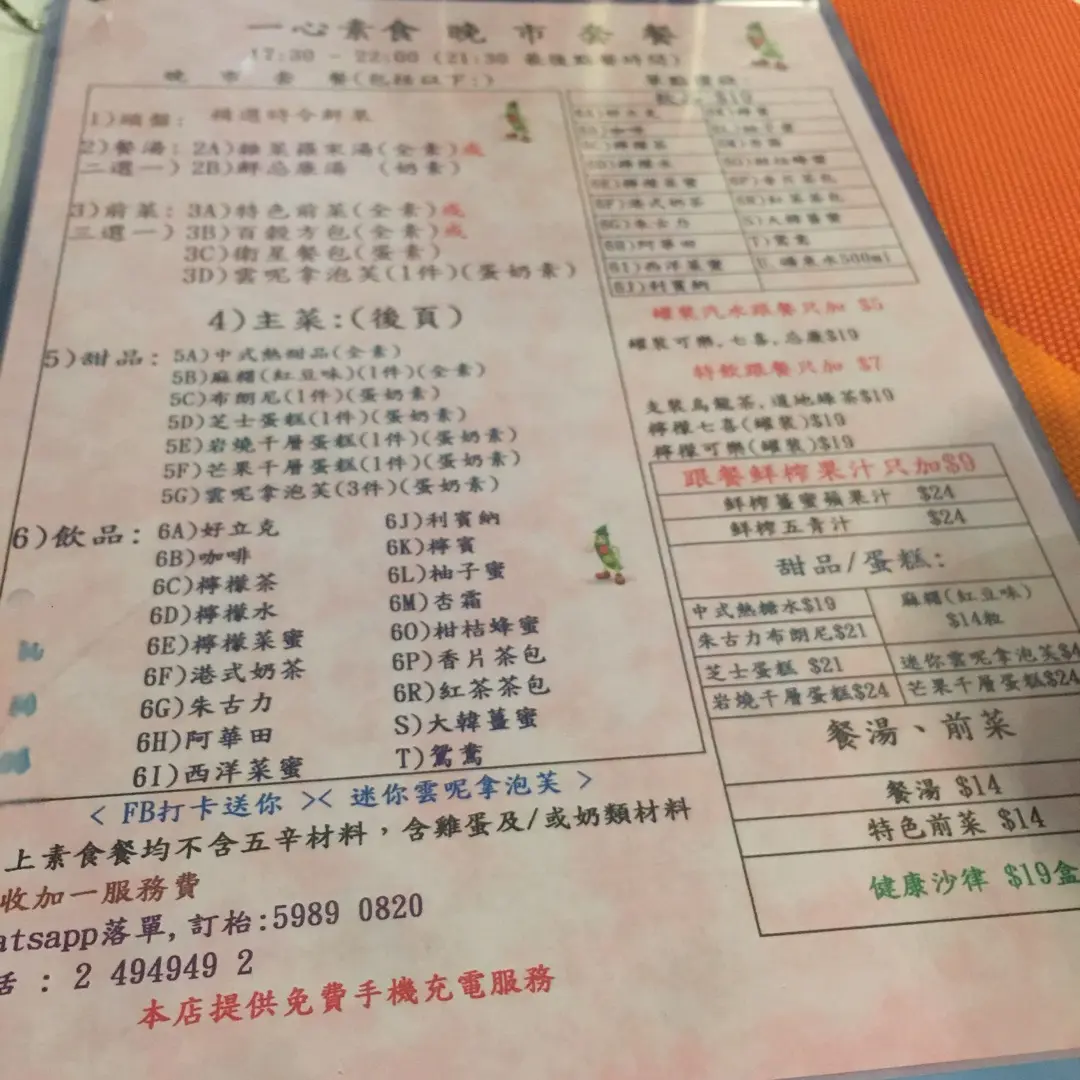 一心素食 晚市套餐
17:30 - 22:00 (21:30 最後點餐時間)
晚市套餐(包括以下:)
1)頭盤: 精選時令鮮果
2)餐湯: 2A)雜菜羅宋湯(全素)或
二選一) 2B)鮮忌廉湯 (奶素)
3)前菜: 3A)特色前菜(全素)或
三選一) 3B)百穀方包(全素)或
3C)衛星餐包(蛋素)
3D)雲呢拿泡芙(1件)(蛋奶素)
4)主菜:(後頁)
5)甜品: 5A)中式熱甜品(全素)
5B)麻糬(紅豆味)(1件)(全素)
5C)布朗尼(1件)(蛋奶素)
5D)芝士蛋糕(1件)(蛋奶素)
5E)岩燒千層蛋糕(1件)(蛋奶素)
5F)芒果千層蛋糕(1件)(蛋奶素)
5G)雲呢拿泡芙(3件)(蛋奶素)
6)飲品: 6A)好立克
6B)咖啡
6C)檸檬茶
6D)檸檬水
6E)檸檬菜蜜
6F)港式奶茶
6G)朱古力
6H)阿華田
6I)西洋菜蜜
6J)利賓納
6K)檸賓
6L)柚子蜜
6M)杏霜
6O)柑桔蜂蜜
6P)香片茶包
6R)紅茶茶包
S)大韓薑蜜
T)鴛鴦
< FB打卡送你 >< 迷你雲呢拿泡芙 >
上素食餐均不含五辛材料，含雞蛋及/或奶類材料
收加一服務費
atsapp落單,訂枱:5989 0820
話 : 2 494949 2
本店提供免費手機充電服務
6C)檸檬茶
6D)檸檬水
6E)檸檬菜蜜
6F)港式奶茶
6G)朱古力
6H)阿華田
6I)西洋菜蜜
6J)利賓納
6O)柑桔蜂蜜
6P)香片茶包
6R)紅茶茶包
S)大韓薑蜜
T)鴛鴦
U.礦泉水500ml
罐裝汽水跟餐只加 $5
罐裝可樂,七喜,忌廉$19
特飲跟餐只加 $7
支裝烏龍茶,道地綠茶$19
檸檬七喜(罐裝)$19
檸檬可樂(罐裝)$19
跟餐鮮榨果汁只加$9
鮮榨薑蜜蘋果汁 $24
鮮榨五青汁 $24
甜品/蛋糕:
中式熱糖水$19
麻糬(紅豆味)
$14粒
朱古力布朗尼$21
芝士蛋糕 $21
迷你雲呢拿泡芙$4
岩燒千層蛋糕$24
芒果千層蛋糕$24
餐湯、前菜
餐湯 $14
特色前菜 $14
健康沙律 $19盒